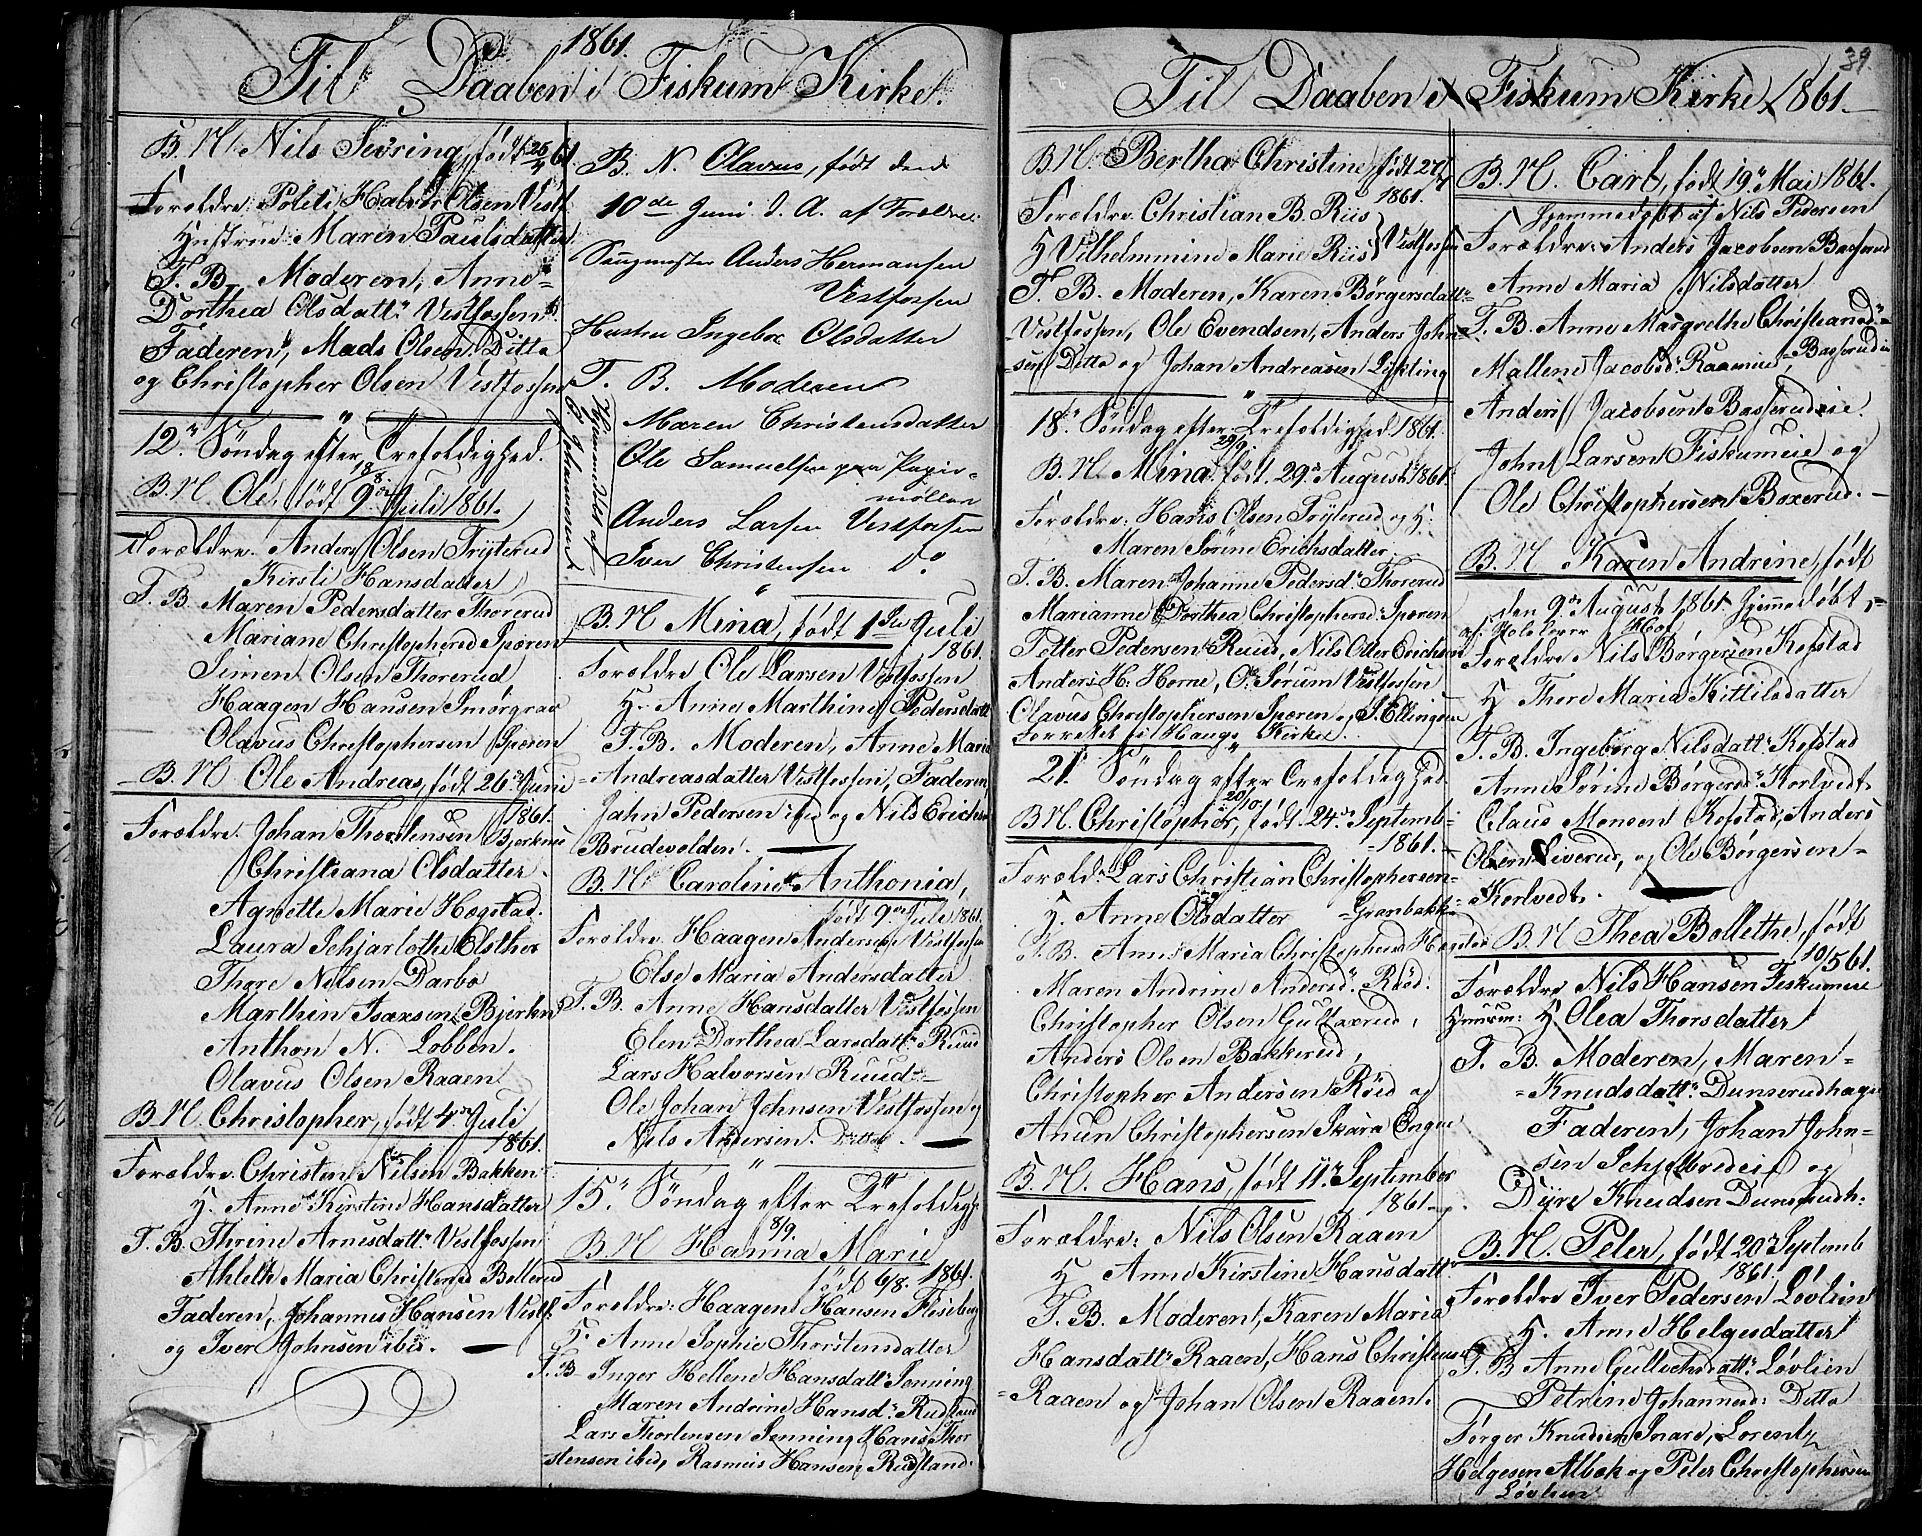 1861.
Til Daaben i Fiskum Kirke.
B. N. Nils Sevring, født 26/4 61
Forældre: Politi Halvor Olsen Vestf.
Hustrue Maren Paulsdatter
F. B. Moderen, Anne
Dorthea Olsdattr Vestfossen
Faderen, Mads Olsen Ditto
og Christopher Olsen Vestfossen
12r Søndag efter Trefoldighed.
18/8
B. N. Ole, født 9de Juli 1861.
Forældre. Anders Olsen Tryterud
Kirsti Hansdatter
F. B. Maren Pedersdatter Thorerud
Mariane Christophersd Spæren
Simen Olsen Thorerud
Haagen Hansen Smørgrav
Olavus Christophersen Spæren
B. N. Ole Andreas, født 26de Juni
1861.
Forældre. Johan Thorstensen Bjerknæs
Christiana Olsdatter
Agnette Marie Hogstad.
Laura Schjarlothe Elsther
Thore Nilsen Darbo
Marthin Isaxsen Bjerkn
Anthon N. Lobben.
Olavus Olsen Raaen
B. N. Christopher, født 4de Juli
1861.
Forældre. Christen Nilsen Bakken
H. Anne Kirstine Hansdatter
F. B. Thrine Arnesdattr Vestfossen
Ahlethe Maria Christensd Bellerud
Faderen, Johannes Hansen Vestf:
og Iver Johnsen ibid.
B. N. Olavus, født den
10de Juni d. A. af Forældre:
Saugmester Anders Hermansen
Vestfossen
Hustru Ingebor Olsdatter
F. B. Moderen
Maren Christensdatter
Ole Samuelsen paa Papir-
møllen
Anders Larsen Vestfossen
Iver Christensen do
Hjemmedøbt af
E. Johannesen
B. N. Mina, født 1ste Juli
1861.
Forældre Ole Larsen Vestfossen
H. Anne Marthine Pedersdatt
F. B. Moderen, Anne Maria
Andreasdatter Vestfossen, Faderen,
John Pedersen ibid og Nils Erichs
Brudevolden.
B. N. Caroline Anthonia,
født 9de Juli 1861.
Forældre. Haagen Andersen Vestfossen
Else Maria Andersdatter
F. B. Anne Hansdatter Vestfossen
Elen Dorthea Larsdattr Ruud
Lars Halvorsen Ruud
Ole Johan Johnsen Vestfossen og
Nils Andersen. Ditto.
15r Søndag efter Trefoldigh
8/9.
B. N. Hanna Marie
født 6/8. 1861.
Forældre: Haagen Hansen Fliseberg
H. Anne Sophie Thorstensdatter
F. B. Inger Hellene Hansdattr Sønning
Maren Andrine Hansdr Rudstand
Lars Thorstensen Sønning Hans Thor
stensen ibid, Rasmus Hansen Rudstand.
39.
Til Daaben i Fiskum Kirke 1861.
B. N. Bertha Christine, født 27/4
1861.
Forældre. Christian B. Riis
H Vilhelmmine Marie Riis } Vestfossen
F. B. Moderen, Karen Børgersdatt
Vestfossen, Ole Evendsen, Anders John
sen Ditto og Johan Andreasen Løkling
18r Søndag efter Trefoldighed 1861.
29/9
B. N. Mina født 29de August 1861
Forældre: Hans Olsen Tryterud og H:
Maren Sørine Erichsdatter
F. B. Maren Johanne Pedersdr Thorerud
Marianne Dorthea Christophersd: Spæren
Petter Pedersen Ruud, Nils Otter Erichsen
Anders H. Horne, O. Sørum Vestfossen
Olavus Christophersen Spæren og S. Ellingsen
Forrettet til Haugs Kirke.
21r Søndag efter Trefoldighed
20/10
B. N. Christopher, født 24de Septemb
1861.
Foræld: Lars Christian Christophersen
H. Anne Olsdatter Granbakk
F. B. Anne Maria Christophersd Hogstad
Maren Andrine Andersdr Røed:
Christopher Olsen Gultaxerud,
Anders Olsen Bakkerud,
Christopher Andersen Røed og
Anun Christophersen Skara Engen
B. N. Hans, født 11te September
1861.
Forældre: Nils Olsen Raaen
H Anne Kirstine Hansdattr
F. B. Moderen, Karen Maria
Hansdattr Raaen, Hans Christensen
Raaen og Johan Olsen Raaen.
B. N. Carl, født 19de Mai 1861.
Hjemmedøbt af Nils Pedersen
Forældre: Anders Jacobsen Basserud
Anne Maria Nilsdatter
F. B. Anne Margrethe Christiansd:
Mallene Jacobsd: Raamund, Basserudeie
Anders Jacobsen Basserudeie.
John Larsen Fiskumeie og
Ole Christophersen Boxerud.
B. N. Karen Andrine, født
den 9de August 1861 Hjemmedøbt
af Skolelærer Hoe
Forældre Nils Børgersen Kofstad
H Thore Maria Kittilsdatter
F. B. Ingeborg Nilsdattr Kofstad
Anne Sørine Børgersd: Korlvedt
Claus Monsen Kofstad, Anders
Olsen Siverud, og Ole Børgersen
Korlvedt.
B. N. Thea Bollethe, født
19/5 61.
Forældre Nils Hansen Fiskumeie
Huusm: H Olea Thorsdatter
F. B. Moderen, Maren
Knudsdattr Dunserudhagen
Faderen, Johan John-
sen Schjelbredeie og
Dyre Knudsen Dunserudh.
B. N. Peter, født 20de Septemb
1861.
Forældre Iver Pedersen Løvlien
H. Anne Helgesdatter
F. B. Anne Gullechsdattr Løvlien
Petrine Johannesd: Ditto
Tørger Knudsen Snare, Lorentz
Helgesen Albek og Peter Christophersen
Løvlien